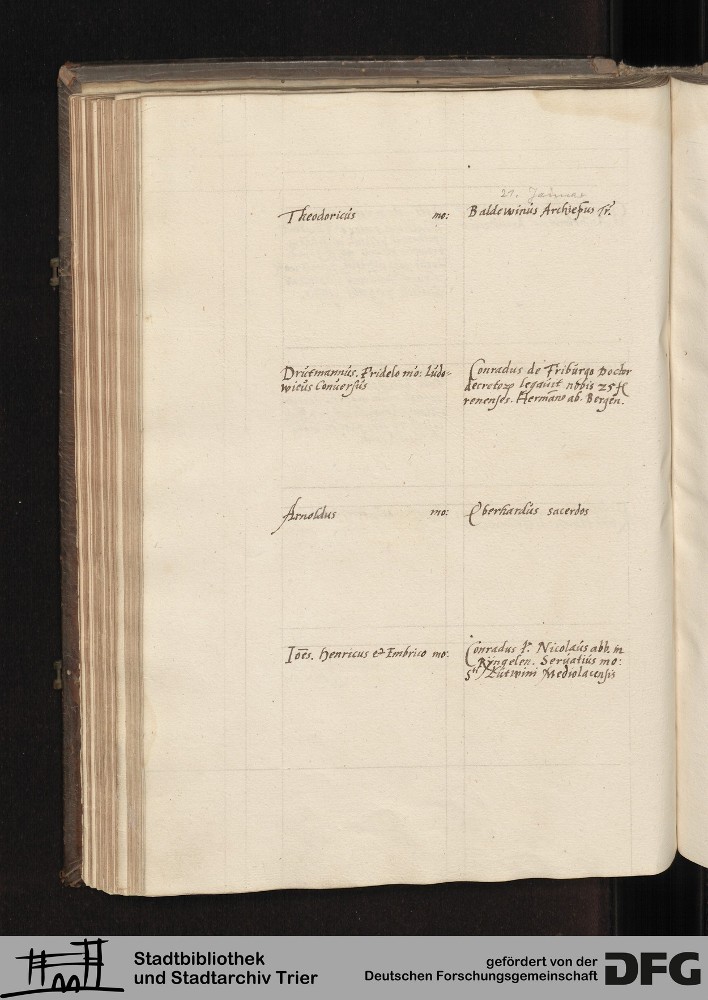 21. Januar
Theodoricus mo: Baldewinus Archiep̃us Tr.
Drutmannus. Fridelo mo: Ludo-
wicus Conversus
Conradus de Friburgo Doctor
decretoꝝ legauit nobis 25 fl
renenses. Hermano ab. Bergen.
Arnoldus mo: Eberhardus sacerdos
Ioẽs. Henricus et Embrico mo:
Conradus Nicolaus abb. in
Ryngelen. Seruatius mo:
Sti Lutwini Mediolacensis
Stadtbibliothek
und Stadtarchiv Trier
gefördert von der
Deutschen Forschungsgemeinschaft
DFG